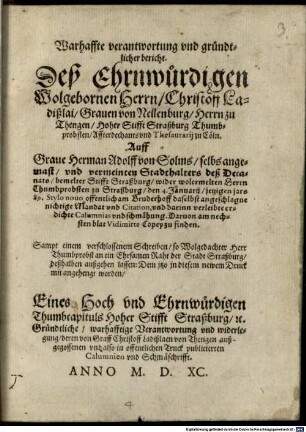 Warhaffte verantwortung vnd gründt-
licher bericht.
Deß Ehrnwürdigen
Wolgebornen Herrn / Christoff La-
dißlai / Grauen von Nellenburg / Herrn zu
Thengen / Hoher Stifft Straßburg Thumb-
probsten / Affterdechants vnd Thesaurarij zu Cöln.
Auff
Graue Herman Adolff von Solms / selbs ange-
mast / vnd vermeinten Stadthalters deß Deca-
nats / bemelter Stifft Straßburg / wider wolermelten Herrn
Thumbprobsten zu Straßburg / den 4. Januarij / jetzigen jars
89. Stylo nouo offentlich am Bruderhoff daselbst angeschlagne
nichtige Mandat vnd Citation, vnd darinn verleibte er-
dichte Calumnias vnd schmähung. Daruon am nech-
sten blat Vidimirte Copey zu finden.
Sampt einem verschlossenem Schreiben / so Wolgedachter Herr
Thumbprobst an ein Ehrsamen Raht der Stadt Straßburg /
deßhalben außgehen lassen: Dem jtzo in diesem newem Druck
mit angehengt worden /
Eines Hoch vnd Ehrnwürdigen
Thumbcapituls Hoher Stifft Straßburg / ꝛc.
Gründtliche / warhafftige Verantwortung vnd widerle-
gung / deren von Graff Christoff Ladißlaen von Thengen auß-
gegossenen vnd also in offentlichen Truck publicierten
Calumnien vnd Schmäschrifft.
ANNO M. D. XC.